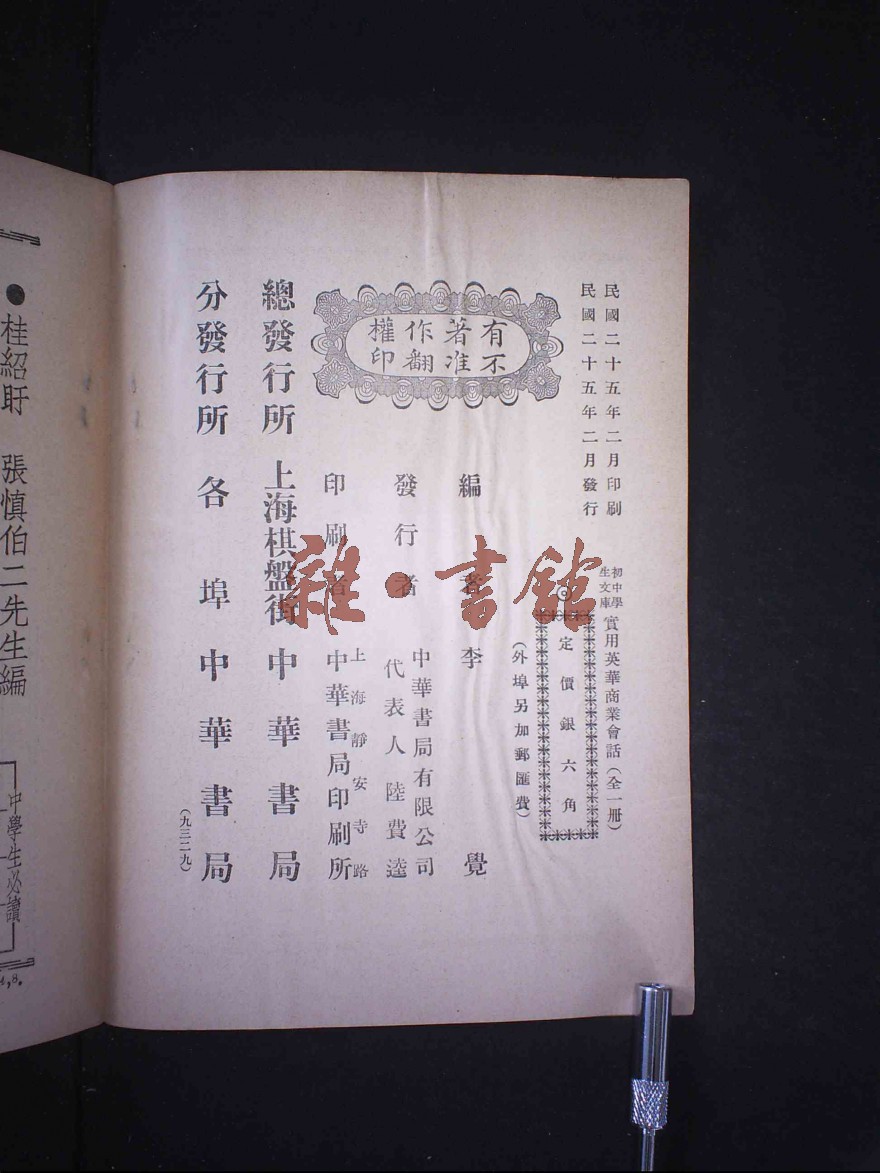 民國二十五年二月印刷
民國二十五年二月發行
初中學生文庫
實用英華商業會話(全一册)
◎定價銀六角
(外埠另加郵匯費)
有著作權
不准翻印
編者 李覺
發行者 中華書局有限公司
代表人 陸費逵
印刷者 上海靜安寺路
中華書局印刷所
總發行所 上海棋盤街 中華書局
分發行所 各埠中華書局
(九三二九)
雜·書館
●桂紹盱 張慎伯二先生編
中學生必讀